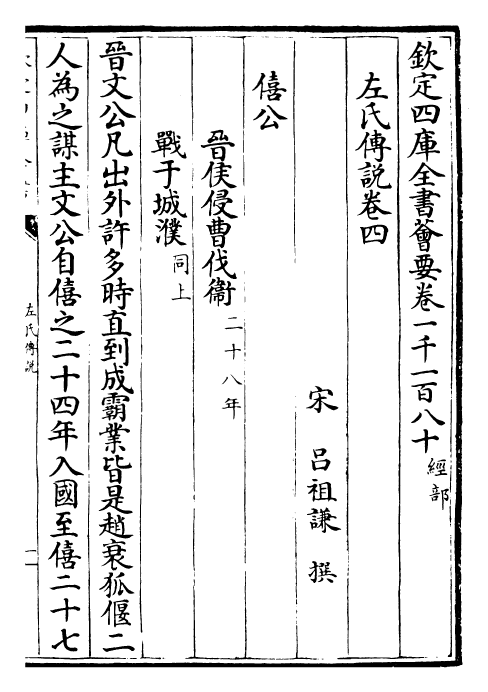 欽定四庫全書薈要卷一千一百八十經部
左氏傳説卷四
宋 吕祖謙 撰
僖公
晉侯侵曹伐衞二十八年
戰于城濮同上
晉文公凡出外許多時直到成霸業皆是趙衰狐偃二
人為之謀主文公自僖之二十四年入國至僖二十七
左氏傳説
一